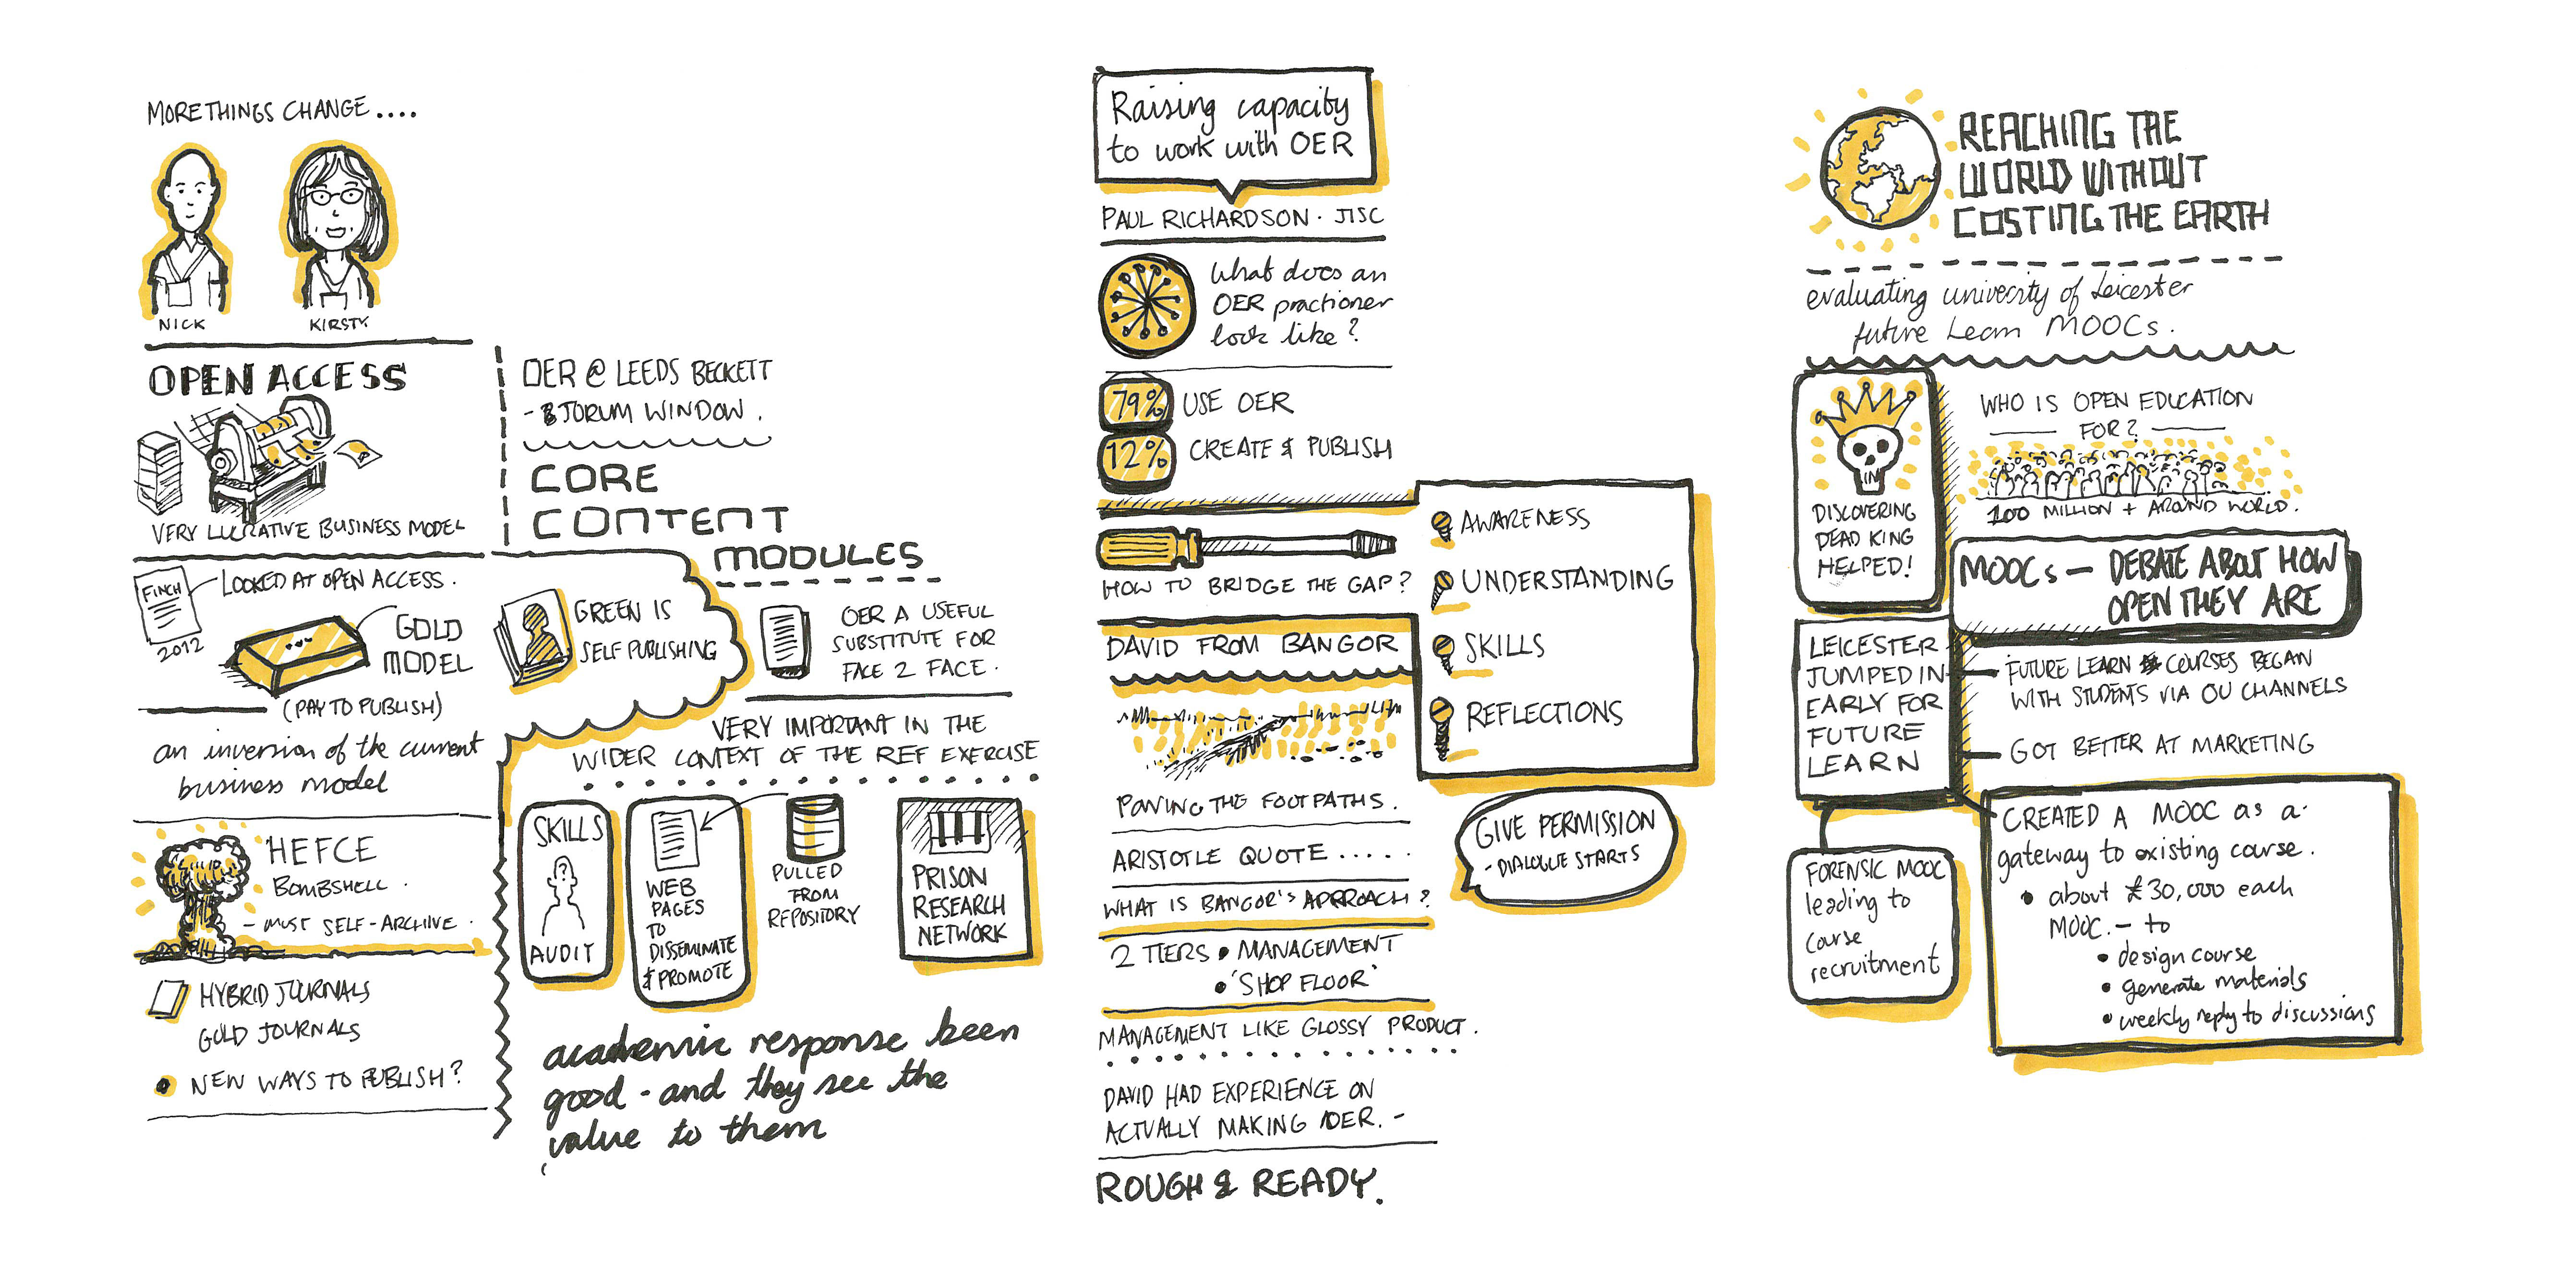 MORE THINGS CHANGE....
NICK
KIRSTY
OPEN ACCESS
VERY LUCRATIVE BUSINESS MODEL
FINCH
2012
LOOKED AT OPEN ACCESS.
GOLD
MODEL
(PAY TO PUBLISH)
an inversion of the current
business model
HEFCE
BOMBSHELL.
- MUST SELF-ARCHIVE.
HYBRID JOURNALS
GOLD JOURNALS
• NEW WAYS TO PUBLISH?
OER @ LEEDS BECKETT
- JORUM WINDOW.
CORE
CONTENT
MODULES
GREEN IS
SELF PUBLISHING
OER A USEFUL
SUBSTITUTE FOR
FACE 2 FACE.
VERY IMPORTANT IN THE
WIDER CONTEXT OF THE REF EXERCISE
SKILLS
?
AUDIT
WEB
PAGES
TO
DISSEMINATE
& PROMOTE
PULLED
FROM
REPOSITORY
PRISON
RESEARCH
NETWORK
academic response been
good - and they see the
value to them
Raising capacity
to work with OER
PAUL RICHARDSON · JISC
What does an
OER practioner
look like?
79% USE OER
12% CREATE & PUBLISH
HOW TO BRIDGE THE GAP?
AWARENESS
UNDERSTANDING
SKILLS
REFLECTIONS
DAVID FROM BANGOR
PAVING THE FOOTPATHS.
ARISTOTLE QUOTE.....
WHAT IS BANGOR'S APPROACH?
GIVE PERMISSION
- DIALOGUE STARTS
2 TIERS • MANAGEMENT
• 'SHOP FLOOR'
MANAGEMENT LIKE GLOSSY PRODUCT.
DAVID HAD EXPERIENCE ON
ACTUALLY MAKING OER. -
ROUGH & READY.
REACHING THE
WORLD WITHOUT
COSTING THE EARTH
evaluating univecity of Leicester
future Learn MOOCs.
IN
DISCOVERING
DEAD KING
HELPED!
WHO IS OPEN EDUCATION
FOR?
100 MILLION + AROUND WORLD.
MOOCs - DEBATE ABOUT HOW
OPEN THEY ARE
LEICESTER
JUMPED IN
EARLY FOR
FUTURE
LEARN
FUTURE LEARN COURSES BEGAN
WITH STUDENTS VIA OU CHANNELS
GOT BETTER AT MARKETING
FORENSIC MOOC
leading to
course
recruitment
CREATED A MOOC as a
gateway to existing course.
• about £30,000 each
MOOC. - to
• design course
• generate materials
• weekly reply to discussions